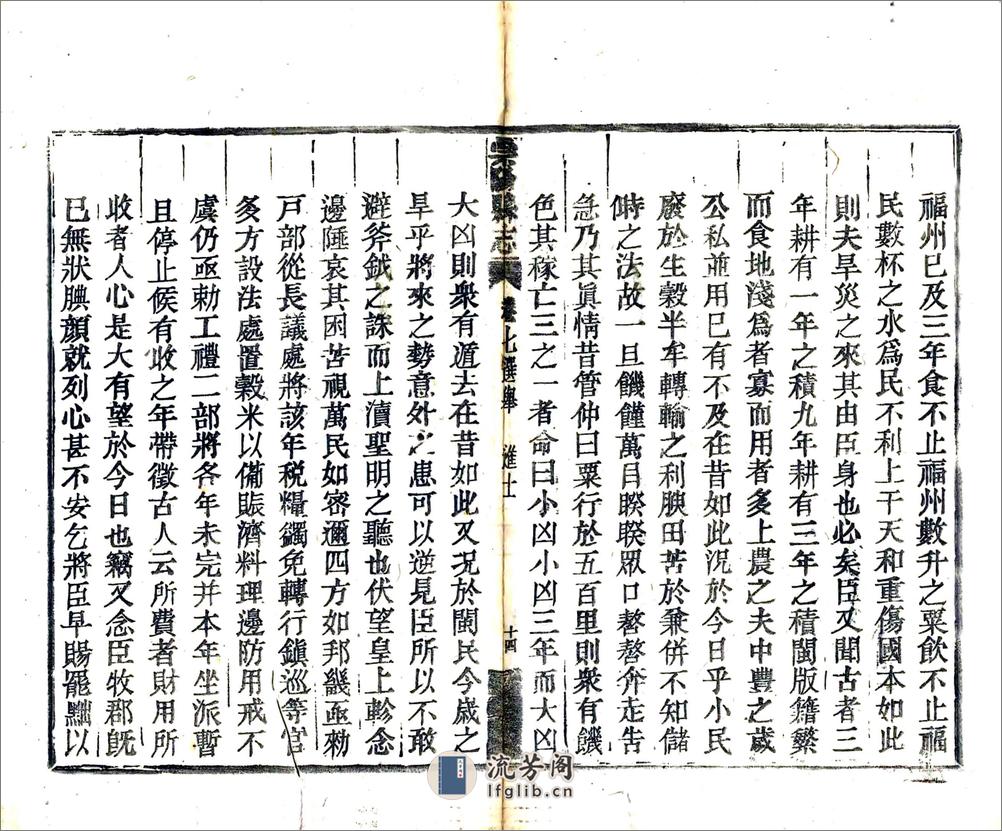 福州已及三年食不止福州數升之粟飲不止福
民數杯之水爲民不利上干天和重傷國本如此
則夫旱災之來其由臣身也必矣臣又聞古者三
年耕有一年之積九年耕有三年之積閩版籍繁
而食地淺爲者寡而用者多上農之夫中豐之歲
公私並用已有不及在昔如此況於今日乎小民
廢於生穀半牟轉輸之利腴田苦於兼併不知儲
偫之法故一旦饑饉萬目睽睽眾口嗸嗸奔走吿
急乃其眞情昔管仲曰粟行於五百里則衆有饑
色其稼亡三之一者命曰小凶小凶三年而大凶
縣志
卷七選舉
進士
十四
大凶則衆有遁去在昔如此又况於閩民今歲之
旱乎將來之勢意外之患可以逆見臣所以不敢
避斧鉞之誅而上瀆聖明之聽也伏望皇上軫念
邊陲哀其困苦視萬民如密邇四方如邦畿亟勅
戸部從長議處將該年税糧蠲免轉行鎭巡等官
多方設法處置穀米以備賑濟料理邊防用戒不
虞仍亟勅工禮二部將各年未完并本年坐派暫
且停止候有收之年帶徵古人云所費者財用所
收者人心是大有望於今日也竊又念臣牧郡旣
已無狀腆顔就列心甚不安乞將臣早賜罷黜以
流芳阁
lfglib.cn